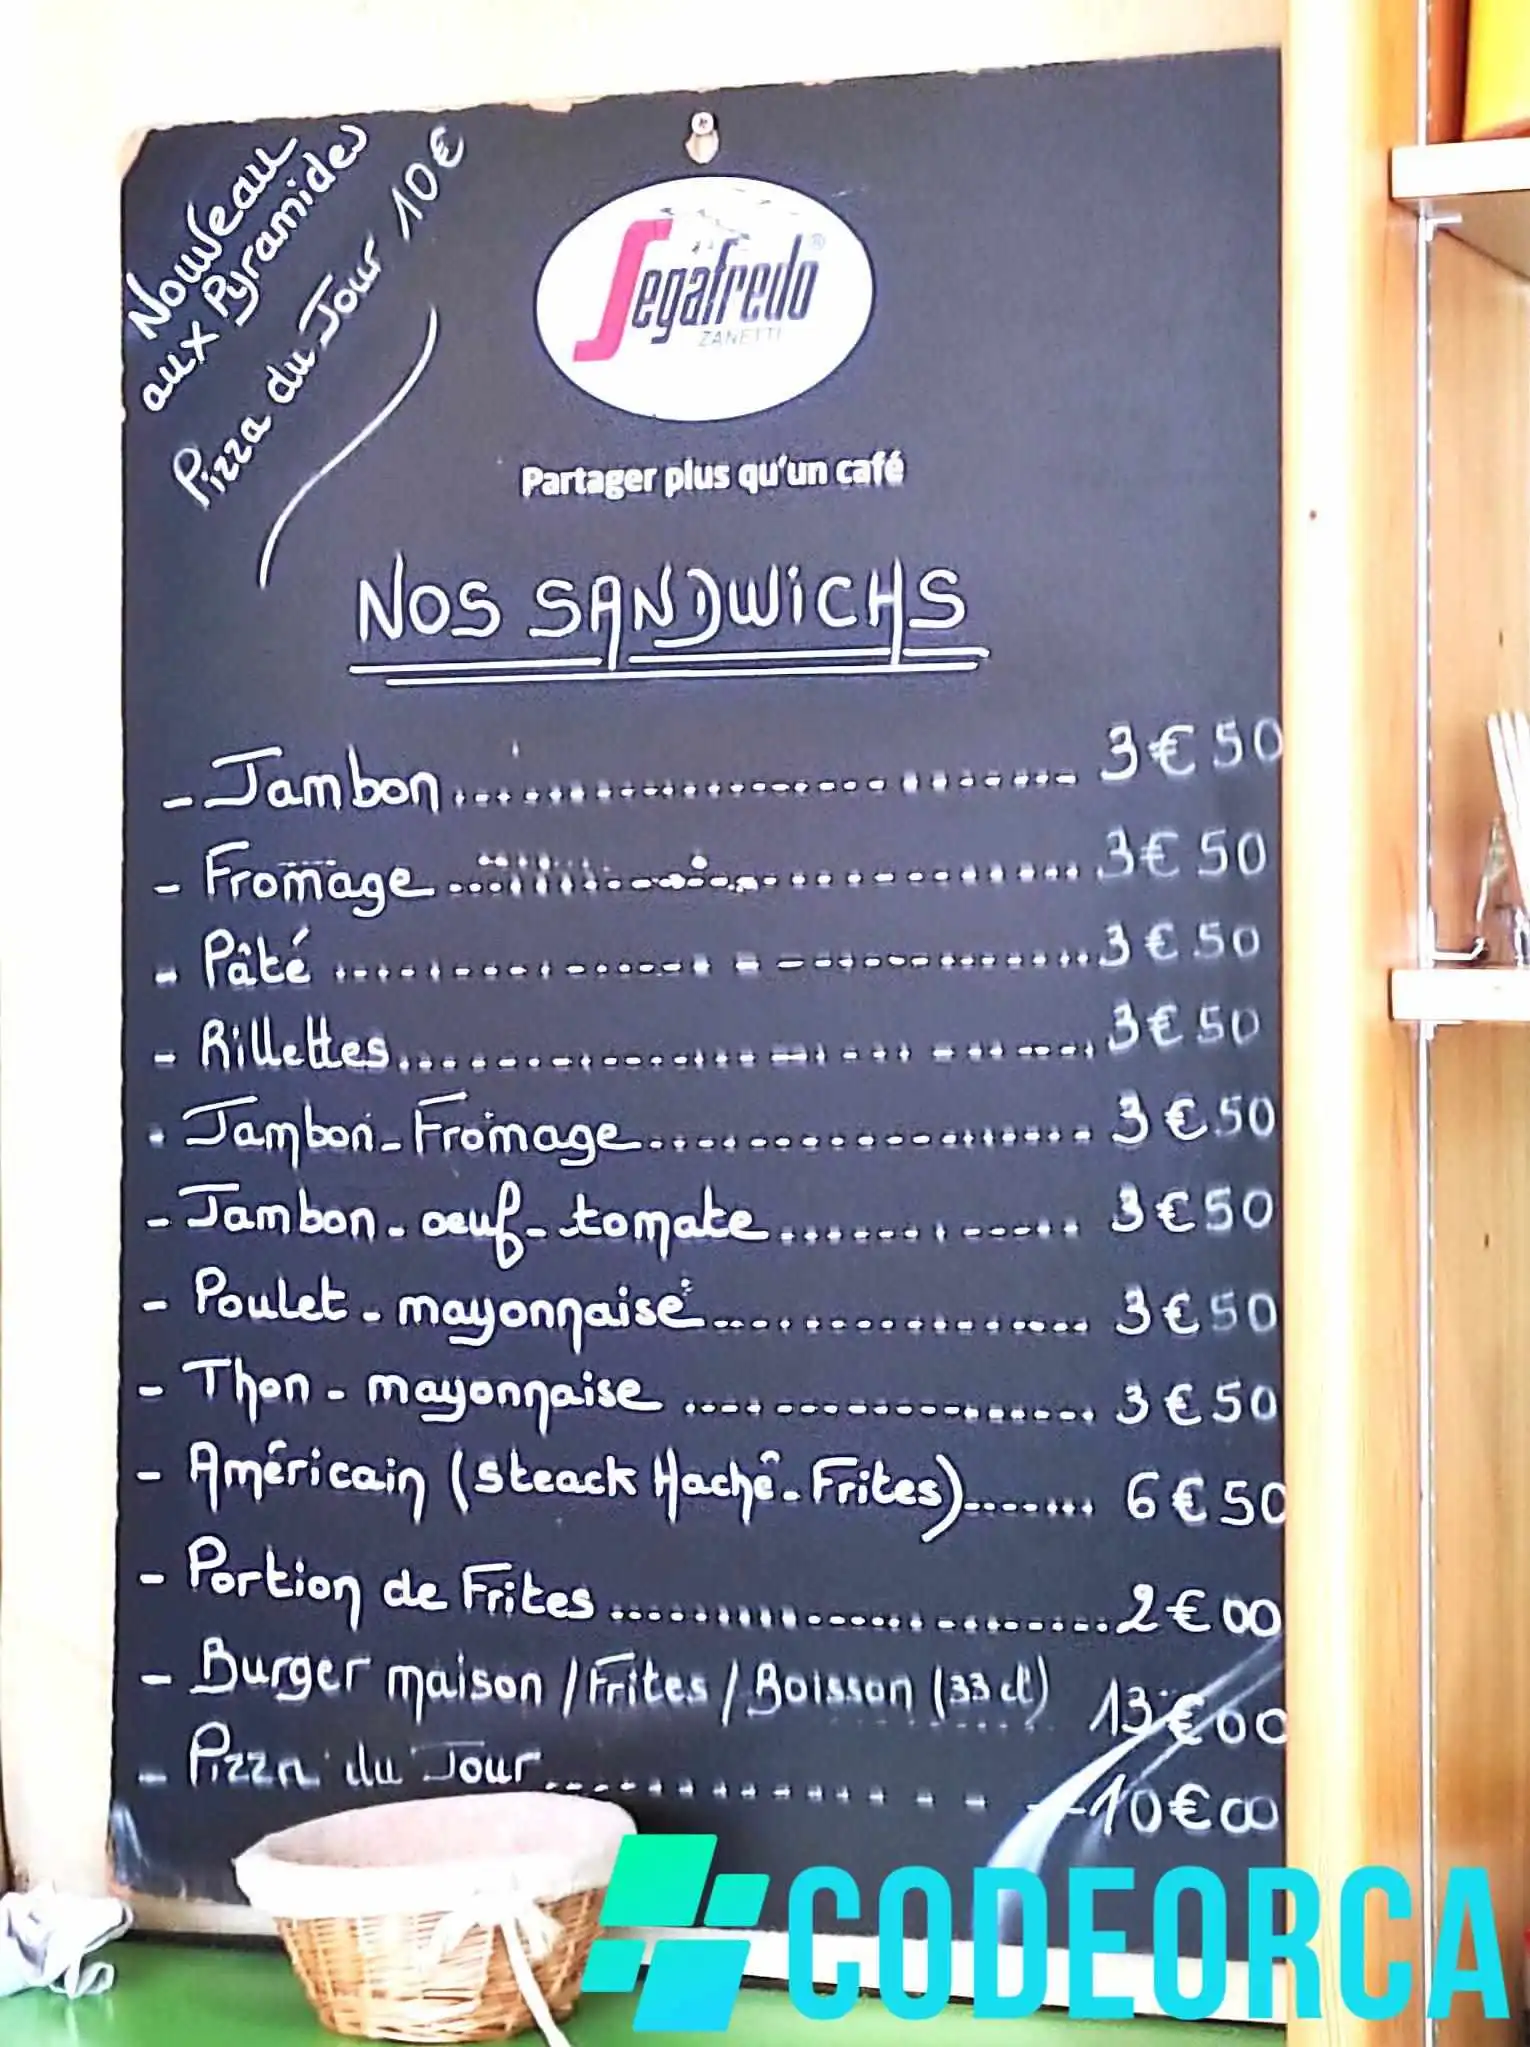 Nouveau
aux Pyramides
Pizza du Jour 10€
Segafredo®
ZANETTI
Partager plus qu'un café
NOS SANDWiCHS
- Jambon 3€50
- Fromage 3€50
- Pâté 3€50
- Rillettes 3€50
- Jambon-Fromage 3€50
- Jambon-oeuf-tomate 3€50
- Poulet-mayonnaise 3€50
- Thon-mayonnaise 3€50
- Américain (steack Haché-Frites) 6€50
- Portion de Frites 2€00
- Burger maison / Frites / Boisson (33 cl) 13€00
- Pizza du Jour 10€00
CODEORCA